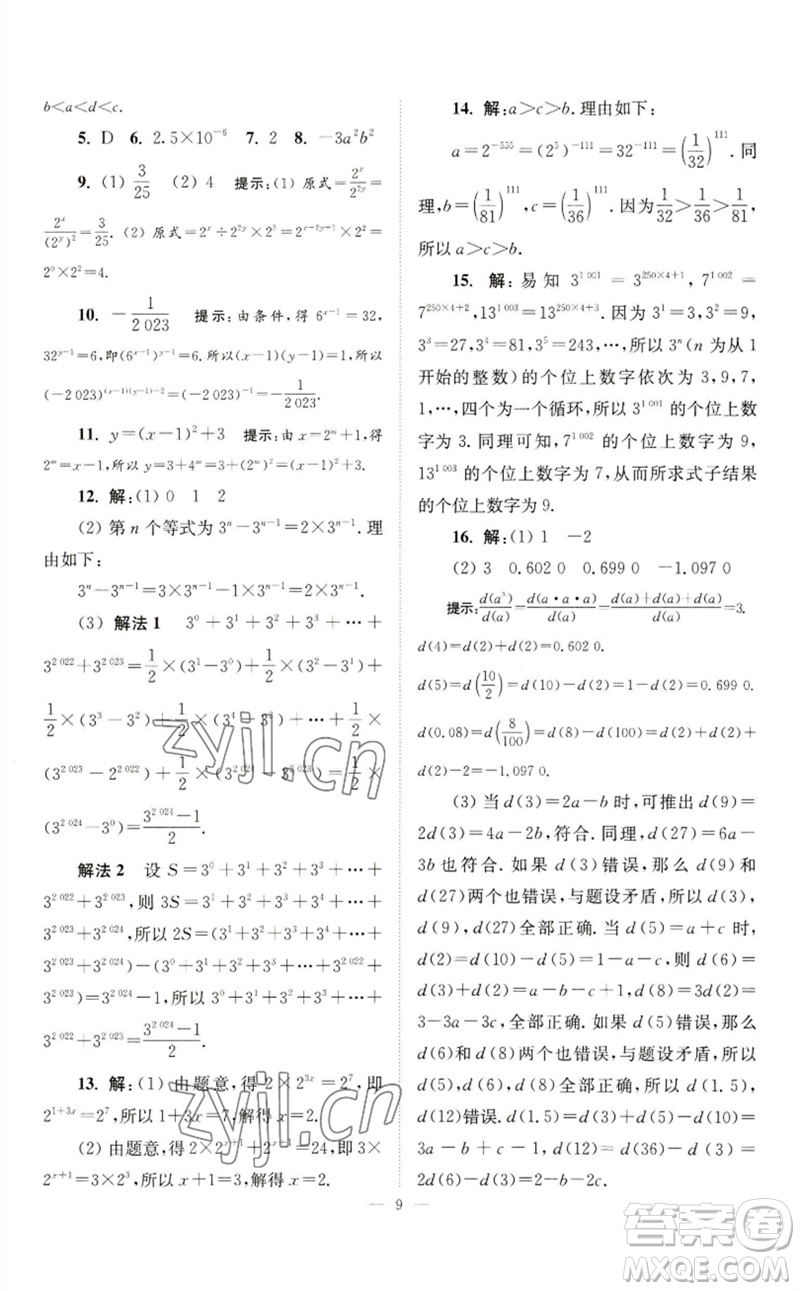 b<a<d<c.
5. D 6. 2.5×10⁻⁶ 7. 2 8. -3a²b²
9. (1) 3/25 (2) 4 提示:(1) 原式=2ˣ/2²ʸ=
2ˣ/(2ʸ)²=3/25. (2) 原式=2ˣ÷2²ʸ×2²=2ˣ⁻²ʸ×2²=
2⁰×2²=4.
10. -1/2 023 提示:由条件,得 6ˣ⁻¹=32,
32ʸ⁻¹=6,即(6ˣ⁻¹)ʸ⁻¹=6.所以(x-1)(y-1)=1.所以
(-2 023)^((x-1)(y-1)-2)=(-2 023)⁻¹=-1/2 023.
11. y=(x-1)²+3 提示:由 x=2ᵐ+1,得
2ᵐ=x-1,所以 y=3+4ᵐ=3+(2ᵐ)²=(x-1)²+3.
12. 解:(1) 0 1 2
(2) 第 n 个等式为 3ⁿ-3ⁿ⁻¹=2×3ⁿ⁻¹.理
由如下:
3ⁿ-3ⁿ⁻¹=3×3ⁿ⁻¹-1×3ⁿ⁻¹=2×3ⁿ⁻¹.
(3) 解法 1 3⁰+3¹+3²+3³+⋯+
3^(2 022)+3^(2 023)=1/2×(3¹-3⁰)+1/2×(3²-3¹)+
1/2×(3³-3²)+1/2×(3⁴-3³)+⋯+1/2×
(3^(2 023)-3^(2 022))+1/2×(3^(2 024)-3^(2 023))=1/2×
(3^(2 024)-3⁰)=(3^(2 024)-1)/2.
解法 2 设 S=3⁰+3¹+3²+3³+⋯+
3^(2 022)+3^(2 023),则 3S=3¹+3²+3³+⋯+
3^(2 022)+3^(2 023)+3^(2 024),所以 2S=(3¹+3²+3³+⋯+
3^(2 023)+3^(2 024))-(3⁰+3¹+3²+3³+⋯+3^(2 022)+
3^(2 023))=3^(2 024)-1,所以 3⁰+3¹+3²+3³+⋯+
3^(2 022)+3^(2 023)=(3^(2 024)-1)/2.
13. 解:(1) 由题意,得 2×2³ˣ=2⁷,即
2¹⁺³ˣ=2⁷,所以 1+3x=7,解得 x=2.
(2) 由题意,得 2×2ˣ⁺¹+2ˣ⁺¹=24,即 3×
2ˣ⁺¹=3×2³,所以 x+1=3,解得 x=2.
14. 解:a>c>b.理由如下:
a=2⁻⁵⁵⁵=(2⁵)⁻¹¹¹=32⁻¹¹¹=(1/32)¹¹¹.同
理,b=(1/81)¹¹¹,c=(1/36)¹¹¹.因为1/32>1/36>1/81,
所以 a>c>b.
15. 解:易知 3^(1 001)=3^(250×4+1),7^(1 002)=
7^(250×4+2),13^(1 003)=13^(250×4+3).因为 3¹=3,3²=9,
3³=27,3⁴=81,3⁵=243,⋯,所以 3ⁿ(n 为从 1
开始的整数)的个位上数字依次为 3,9,7,
1,⋯,四个为一个循环,所以 3^(1 001) 的个位上数
字为 3.同理可知,7^(1 002) 的个位上数字为 9,
13^(1 003) 的个位上数字为 7,从而所求式子结果
的个位上数字为 9.
16. 解:(1) 1 -2
(2) 3 0.602 0 0.699 0 -1.097 0
提示:d(a³)/d(a)=d(a·a·a)/d(a)=(d(a)+d(a)+d(a))/d(a)=3.
d(4)=d(2)+d(2)=0.602 0.
d(5)=d(10/2)=d(10)-d(2)=1-d(2)=0.699 0.
d(0.08)=d(8/100)=d(8)-d(100)=d(2)+d(2)+
d(2)-2=-1.097 0.
(3) 当 d(3)=2a-b 时,可推出 d(9)=
2d(3)=4a-2b,符合.同理,d(27)=6a-
3b 也符合.如果 d(3)错误,那么 d(9)和
d(27)两个也错误,与题设矛盾,所以 d(3),
d(9),d(27)全部正确.当 d(5)=a+c 时,
d(2)=d(10)-d(5)=1-a-c,则 d(6)=
d(2)+d(3)=1+a-b-c,d(8)=3d(2)=
3-3a-3c,全部正确.如果 d(5)错误,那么
d(6),d(8)也都错误,与题设矛盾,所以
d(1.5),d(12)错误.d(1.5)=d(3)-d(2)=
3a-b+c-1,d(12)=d(36)-d(3)=
2d(6)-d(3)=2-b-2c.
9
zyjl.cn
zyjl.cn
答案圈
MXQE.COM